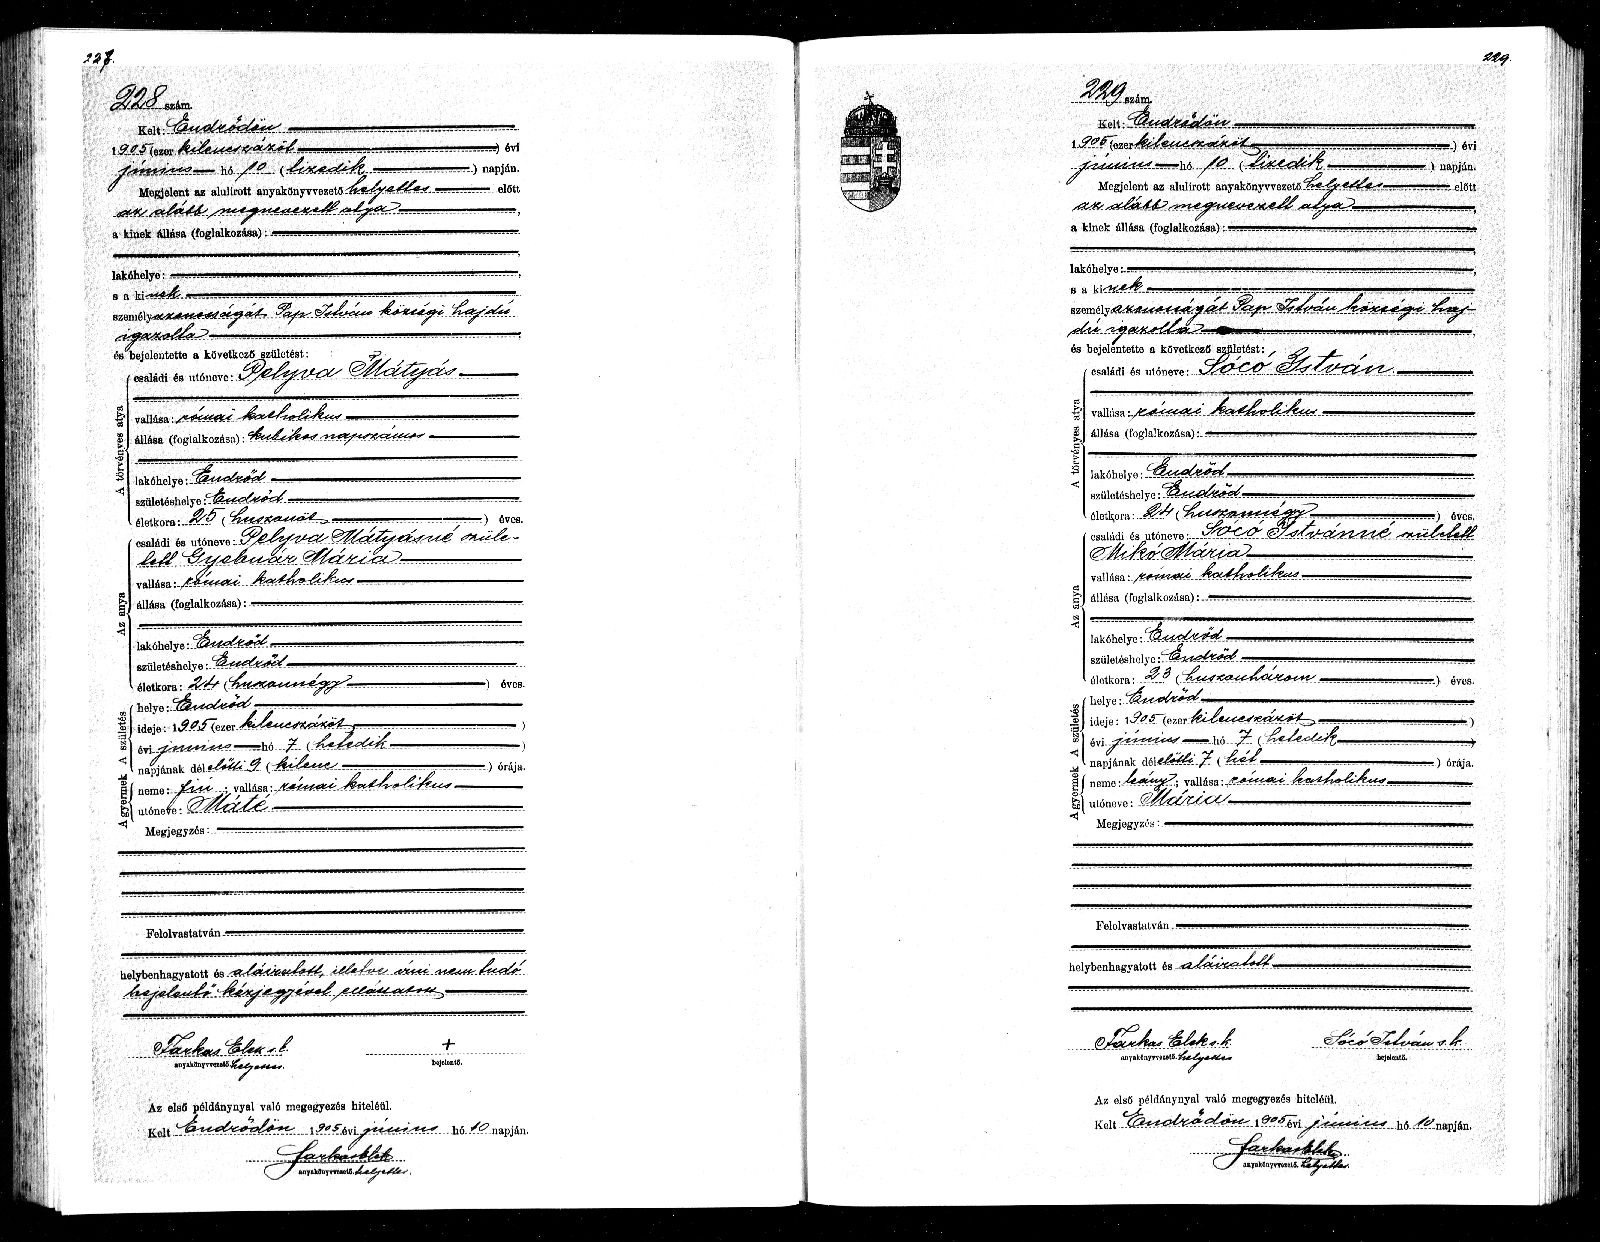 228.
228 szám.
Kelt: Endrődön
1905 (ezer kilencszázöt) évi
június hó 10 (tizedik) napján.
Megjelent az alulirott anyakönyvvezető helyettes előtt
az alább megnevezett atya,
a kinek állása (foglalkozása):
lakóhelye:
s a kinek
személyazonosságát Pap István községi hajdú
igazolta
és bejelentette a következő születést:
A törvényes atya
családi és utóneve: Pelyva Mátyás
vallása: római katholikus
állása (foglalkozása): kubikos napszámos
lakóhelye: Endrőd
születéshelye: Endrőd
életkora: 25 (huszonöt) éves.
Az anya
családi és utóneve: Pelyva Mátyásné szüle-
tett Gyebnár Mária
vallása: római katholikus
állása (foglalkozása):
lakóhelye: Endrőd
születéshelye: Endrőd
életkora: 24 (huszonnégy) éves.
A születés
helye: Endrőd
ideje: 1905 (ezer kilencszázöt)
évi június hó 7 (hetedik)
napjának délelőtti 9 (kilenc) órája.
A gyermek
neme: fiú; vallása: római katholikus
utóneve: Máté
Megjegyzés:
Felolvastatván
helybenhagyatott és aláiratott, illetve írni nem tudó
bejelentő kézjegyével ellátatott
Farkas Elek s.k. +
anyakönyvvezető helyettes. bejelentő.
Az első példánynyal való megegyezés hiteléül.
Kelt Endrődön 1905 évi június hó 10 napján.
Farkas Elek
anyakönyvvezető. helyettes.
229.
229 szám.
Kelt: Endrődön
1905 (ezer kilencszázöt) évi
június hó 10 (tizedik) napján.
Megjelent az alulirott anyakönyvvezető helyettes előtt
az alább megnevezett atya,
a kinek állása (foglalkozása):
lakóhelye:
s a kinek
személyazonosságát Pap István községi haj-
dú igazolta
és bejelentette a következő születést:
A törvényes atya
családi és utóneve: Sócó István
vallása: római katholikus
állása (foglalkozása):
lakóhelye: Endrőd
születéshelye: Endrőd
életkora: 24 (huszonnégy) éves.
Az anya
családi és utóneve: Sócó Istvánné született
Mikó Mária
vallása: római katholikus
állása (foglalkozása):
lakóhelye: Endrőd
születéshelye: Endrőd
életkora: 23 (huszonhárom) éves.
A születés
helye: Endrőd
ideje: 1905 (ezer kilencszázöt)
évi június hó 7 (hetedik)
napjának délelőtti 7 (hét) órája.
A gyermek
neme: leány; vallása: római katholikus
utóneve: Mária
Megjegyzés:
Felolvastatván
helybenhagyatott és aláiratott
Farkas Elek s.k. Sócó István s.k.
anyakönyvvezető. helyettes bejelentő.
Az első példánynyal való megegyezés hiteléül.
Kelt Endrődön 1905 évi június hó 10 napján.
Farkas Elek
anyakönyvvezető. helyettes.